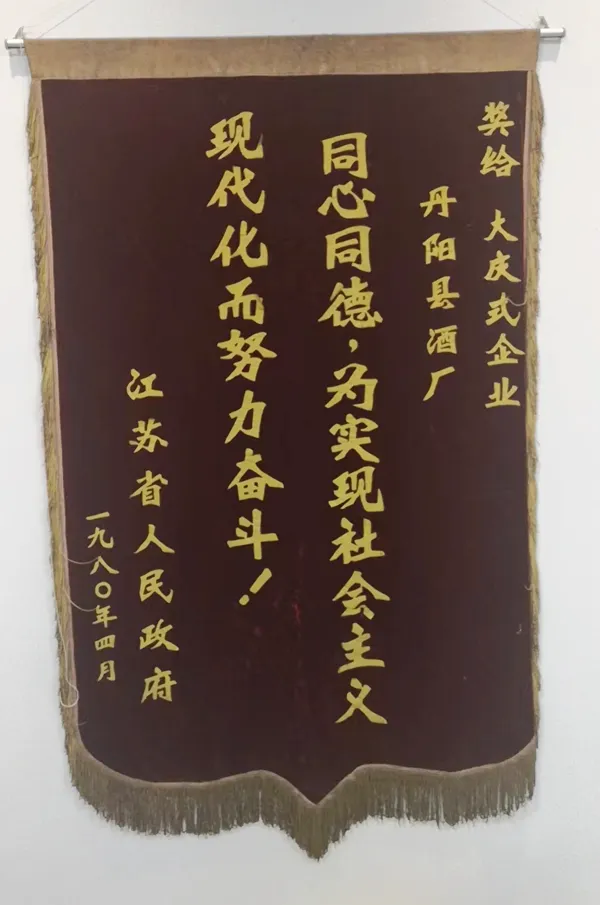 奖给 大庆式企业
丹阳县酒厂
同心同德，为实现社会主义
现代化而努力奋斗！
江苏省人民政府
一九八〇年四月